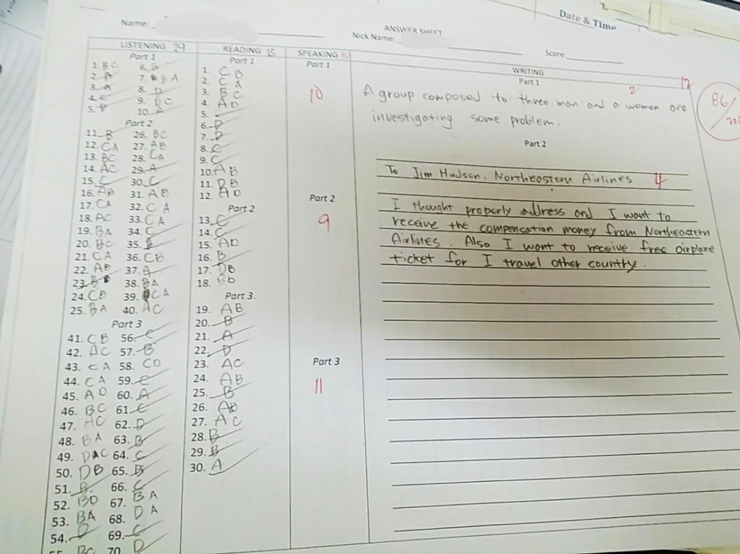 Date & Time
ANSWER SHEET
Name:
Nick Name:
Score:
LISTENING 29
Part 1
1. B C
2. A
3. A
4. C
5.
6.
7. A
8. D
9. D C
10.
Part 2
11. B
12. C A
13. B C
14. A C
15. C
16. A B
17. C A
18. A C
19. B A
20. B C
21. C A
22. A B
23. B
24. C B
25. B A
26. B C
27. A B
28. C A
29. A
30. C
31. A B
32. C A
33. C A
34. C
35. B
36. C B
37. A
38. B A
39. C A
40. A C
Part 3
41. C B
42. A C
43. C A
44. C A
45. A D
46. B C
47. A C
48. B A
49. D A C
50. D B
51. B
52. B D
53. B A
54. D
55. B C
56. C
57. B
58. C D
59. C
60. A
61. C
62. D
63. B
64. C
65. B
66. C
67. B A
68. D A
69. C
70. D
READING 15
Part 1
1. C B
2. C A
3. B C
4. A D
5.
6. D
7. D
8. C
9. C
10. A B
11. D B
12. A D
Part 2
13. C
14. C
15. A D
16. B
17. D B
18. B D
Part 3.
19. A B
20. B
21. A
22. D
23. A C
24. A B
25. B
26. A B
27. A C
28. B
29. B
30. A
SPEAKING
Part 1
10
Part 2
9
Part 3
11
WRITING
Part 1
A group composed to three man and a women are
investigating some problem.
Part 2
To Jim Hudson, Northeastern Airlines 4
I thought properly address and I want to
receive the compensation money from Northeastern
Airlines. Also I want to receive free airplane
ticket for I travel other country.
86